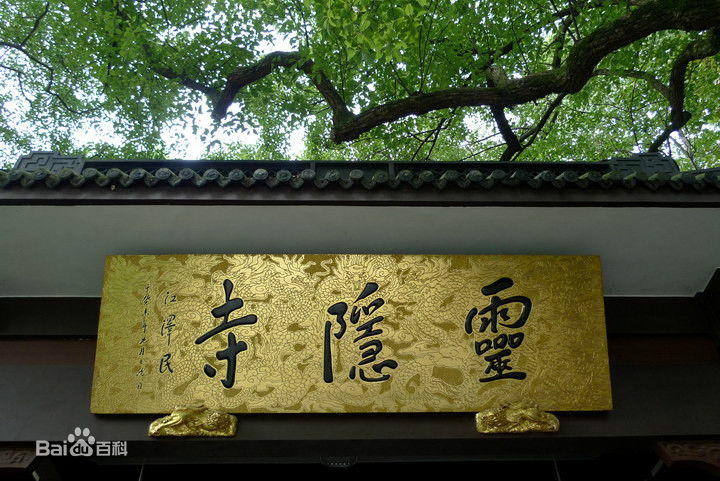 靈隱寺
江澤民
Bai du 百科